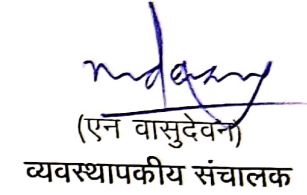 (एन वासुदेवन)
व्यवस्थापकीय संचालक